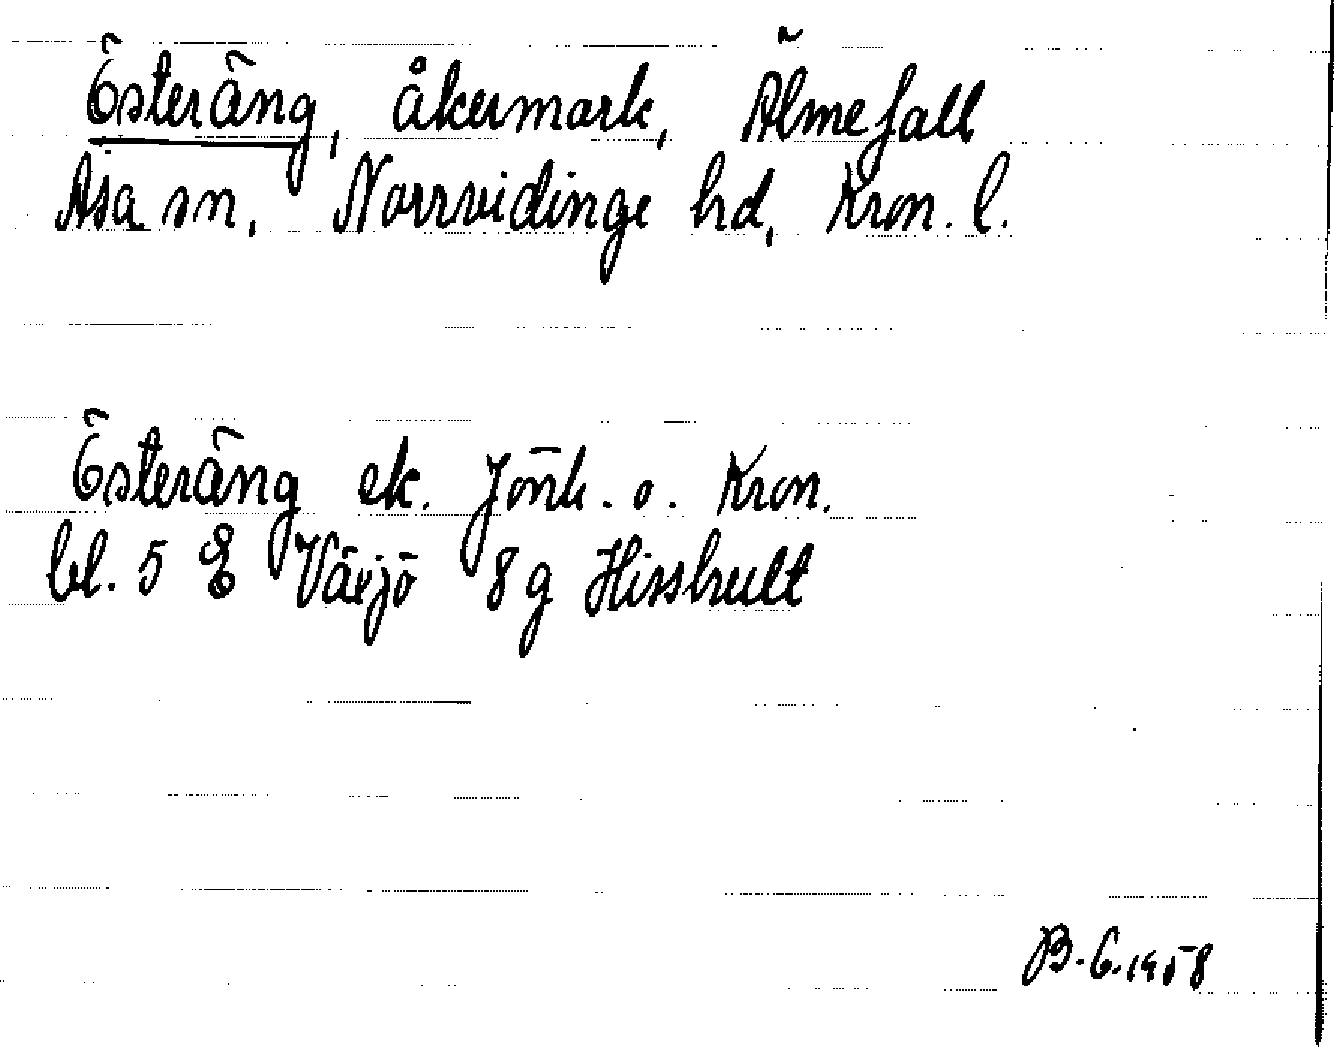 Österäng, åkermark, Älmefall
Asa sn, Norrvidinge hd, Kron. l.
Österäng ek. Jönk. o. Kron.
bl. 5 E Växjö 8 g Hisshult
B. G. 1958